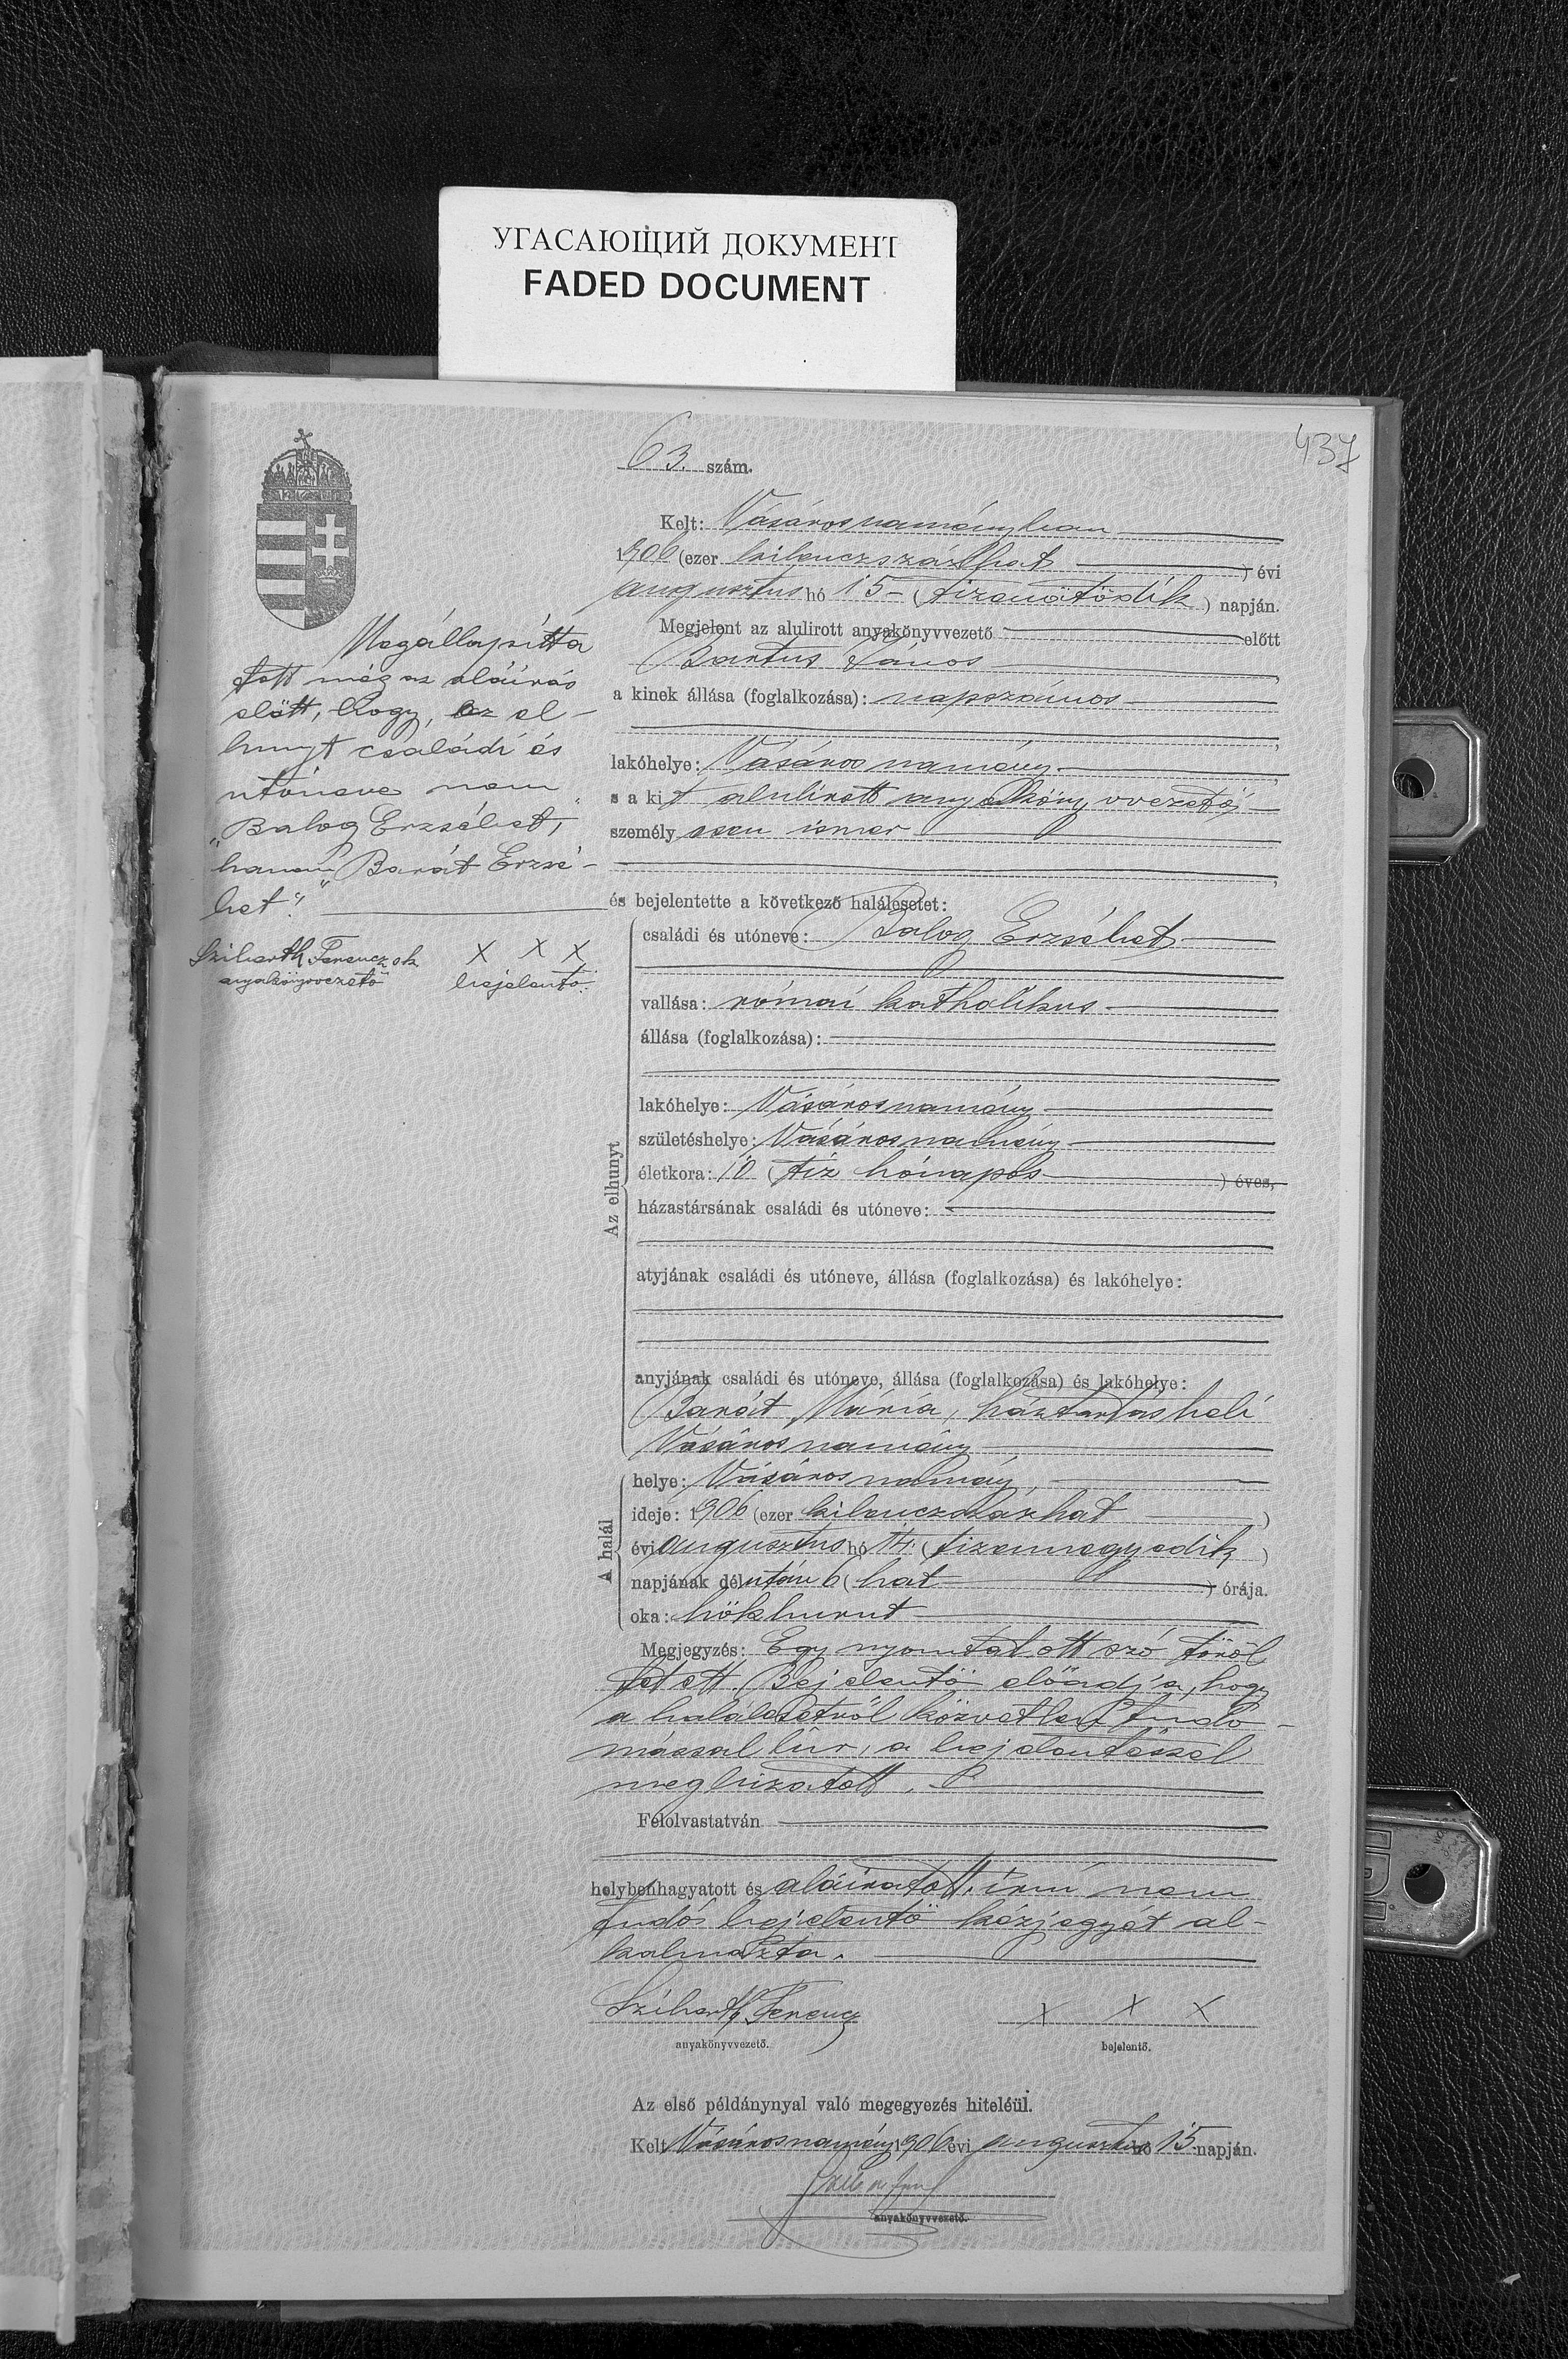 УГАСАЮЩИЙ ДОКУМЕНТ
FADED DOCUMENT
437
63. szám.
Kelt: Vásárosnaményban
1906 (ezer kilenczszázhat ) évi
augusztus hó 15- (tizenötödik ) napján.
Megjelent az alulirott anyakönyvvezető előtt
Bartus János
a kinek állása (foglalkozása): napszámos
lakóhelye: Vásárosnamény
s a kit alulirott anyakönyvvezető
személyesen ismer
és bejelentette a következő halálesetet:
Megállapitta
tott még az aláirás
előtt, hogy, az el-
hunyt családi és
utóneve nem
"Balog Erzsébet,
hanem "Barát Erzsé-
bet".
Sziberth Ferencz sk
anyakönyvvezető
X X X
bejelentő.
Az elhunyt
családi és utóneve: Balog Erzsébet
vallása: római katholikus
állása (foglalkozása):
lakóhelye: Vásárosnamény
születéshelye: Vásárosnamény
életkora: 10 (tíz hónapos ) éves,
házastársának családi és utóneve:
atyjának családi és utóneve, állása (foglalkozása) és lakóhelye:
anyjának családi és utóneve, állása (foglalkozása) és lakóhelye:
Barát Mária, háztartásbeli
Vásárosnamény
A halál
helye: Vásárosnamény,
ideje: 1906 (ezer kilenczszázhat )
évi augusztus hó 14. (tizennegyedik )
napjának délután 6 (hat ) órája.
oka: hökhurut
Megjegyzés: Egy nyomtatott szó töröl
tetett. Bejelentő előadja, hogy
a halálesetről közvetlen tudo-
mással bír, a bejelentéssel
megbízatott.
Felolvastatván
helybenhagyatott és aláiratott, írni nem
tudó bejelentő kézjegyét al-
kalmazta.
Sziberth Ferencz
anyakönyvvezető.
X X X
bejelentő.
Az első példánynyal való megegyezés hiteléül.
Kelt Vásárosnamény 1906 évi augusztus hó 15 napján.
anyakönyvvezető.